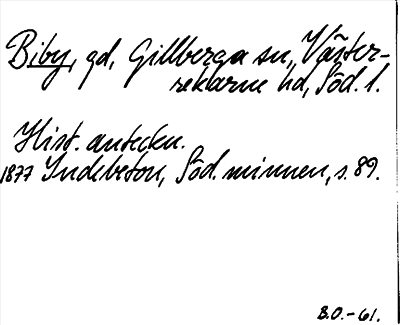 Biby, gd, Gillberga sn, Väster-
rekarne hd, Söd. l.
Hist. anteckn.
1877 Indebetou, Söd. minnen, s. 89.
B.O.-61.